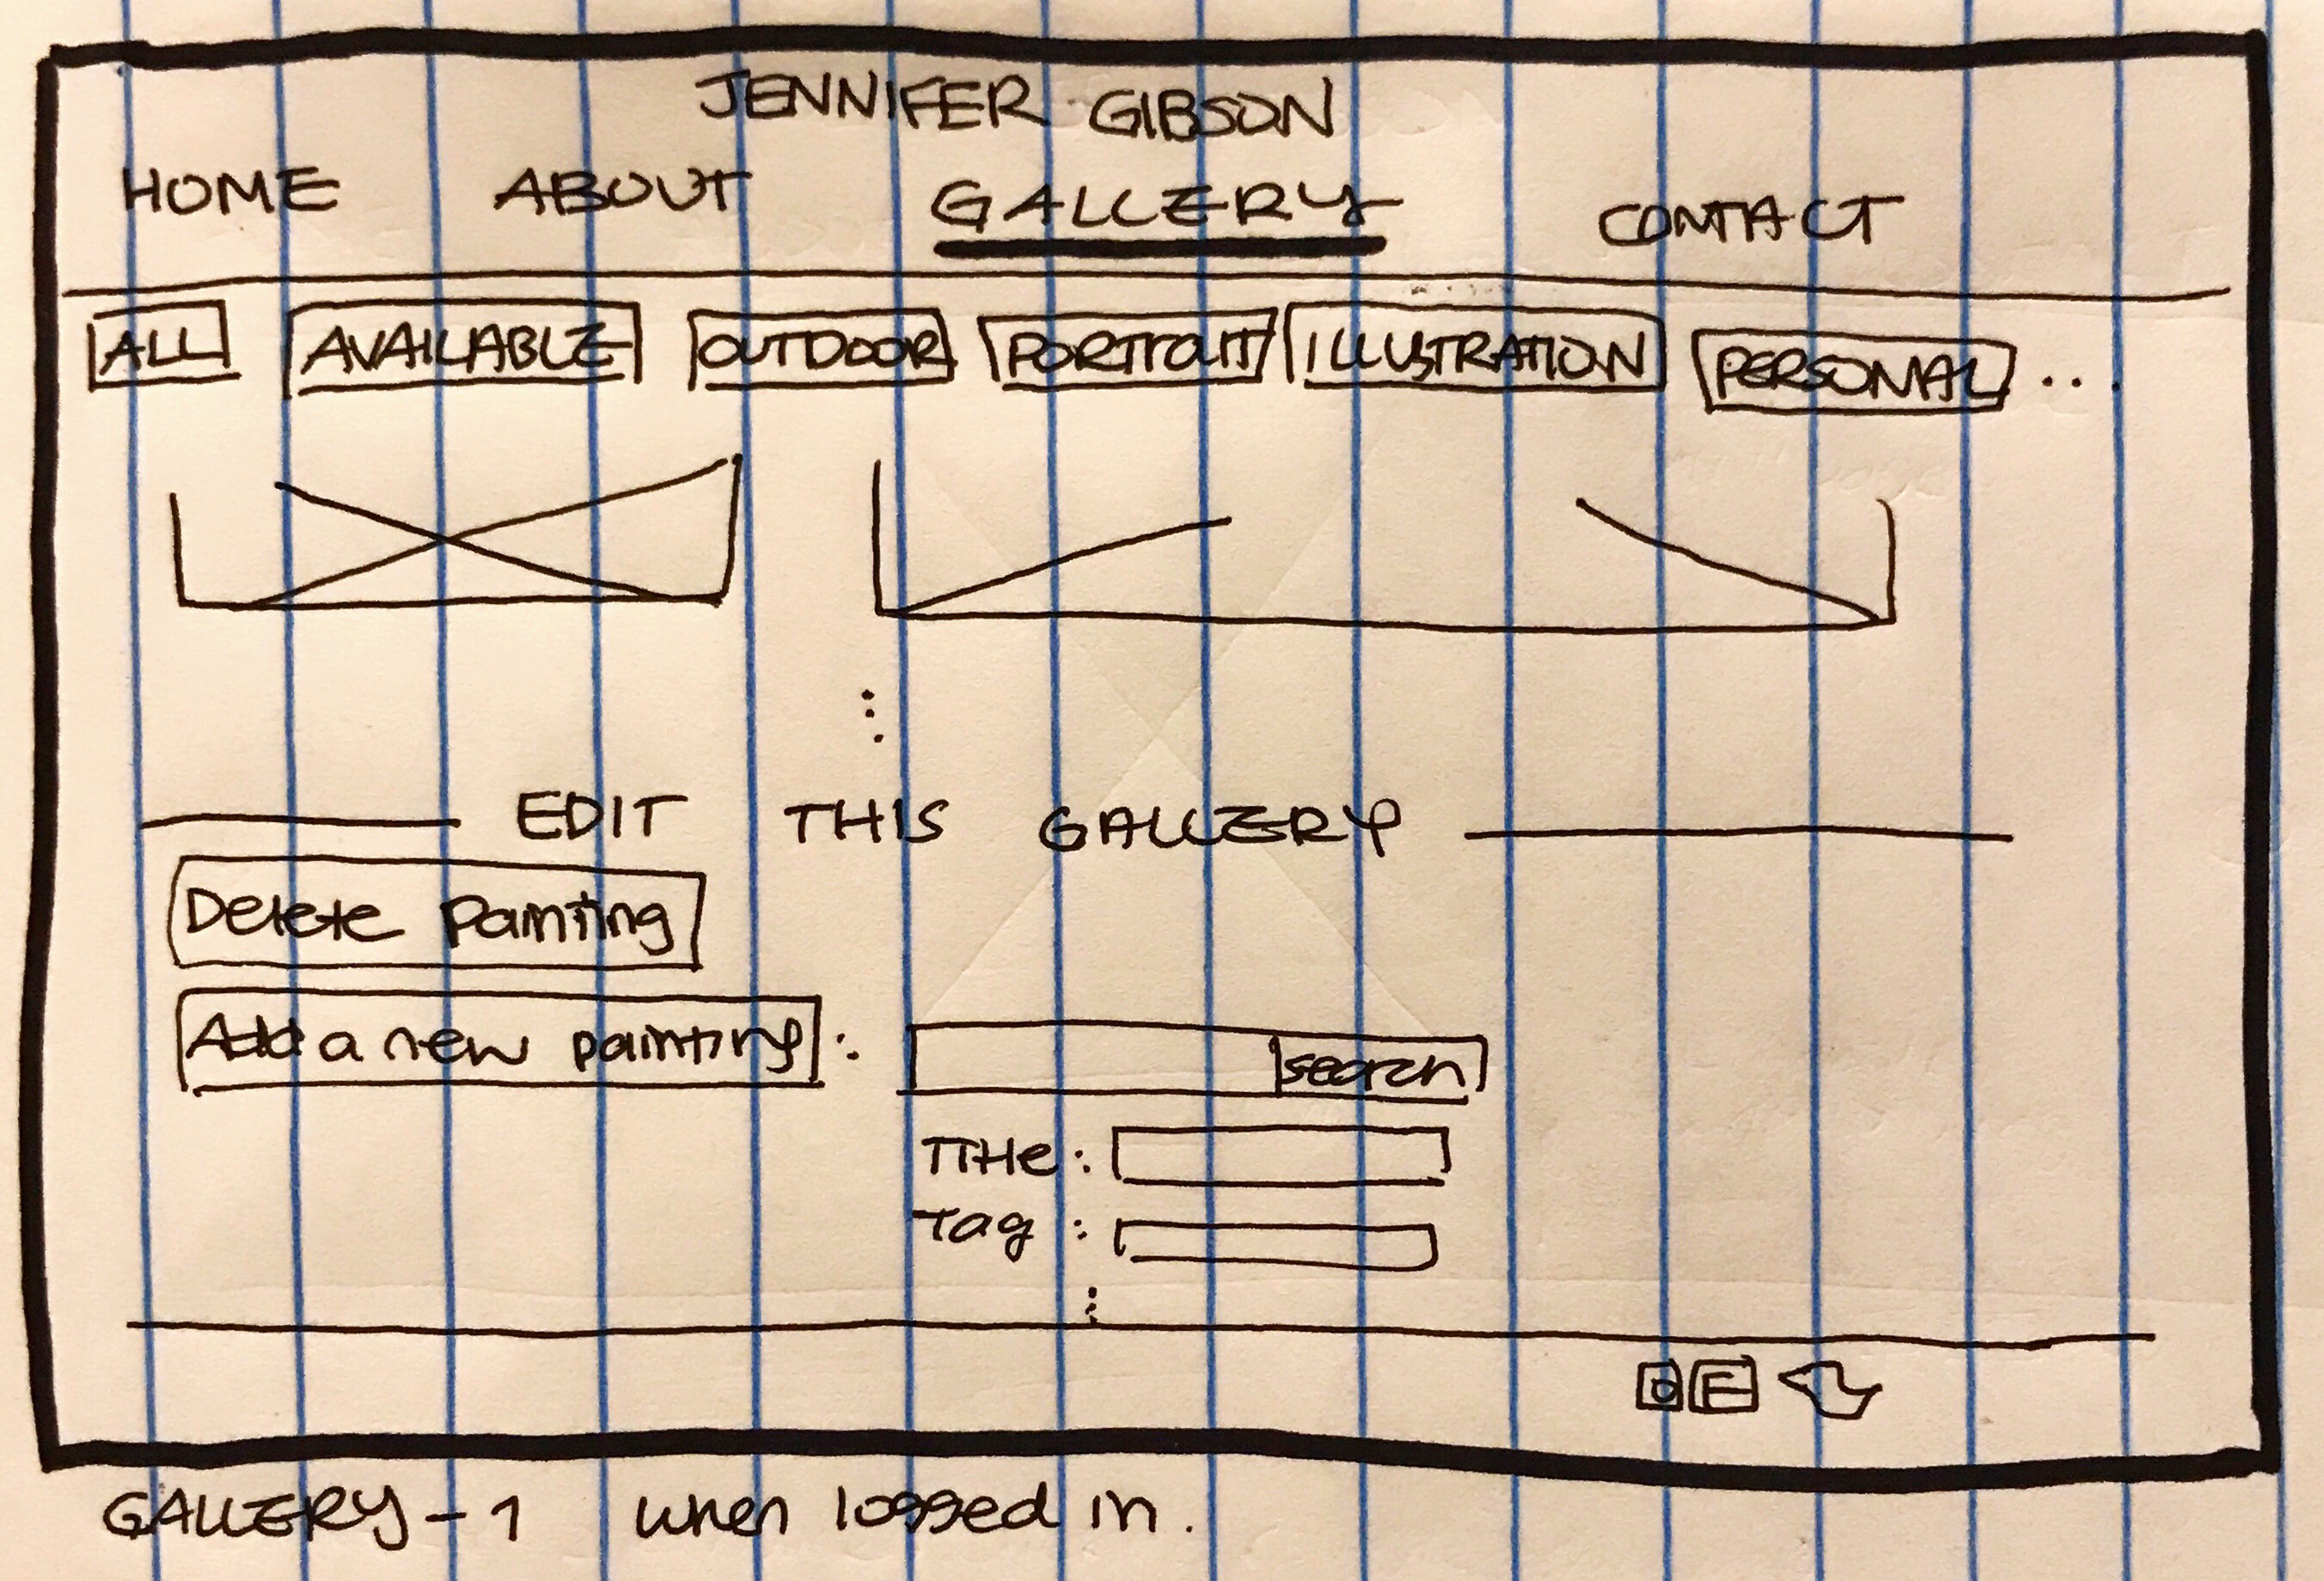 JENNIFER GIBSON
HOME ABOUT GALLERY CONTACT
ALL AVAILABLE OUTDOOR PORTrait ILLUSTRATION PERSONAL ...
EDIT THIS GALLERY
Delete Painting
Add a new painting : search
Title :
Tag :
GALLERY - 1 when logged in.